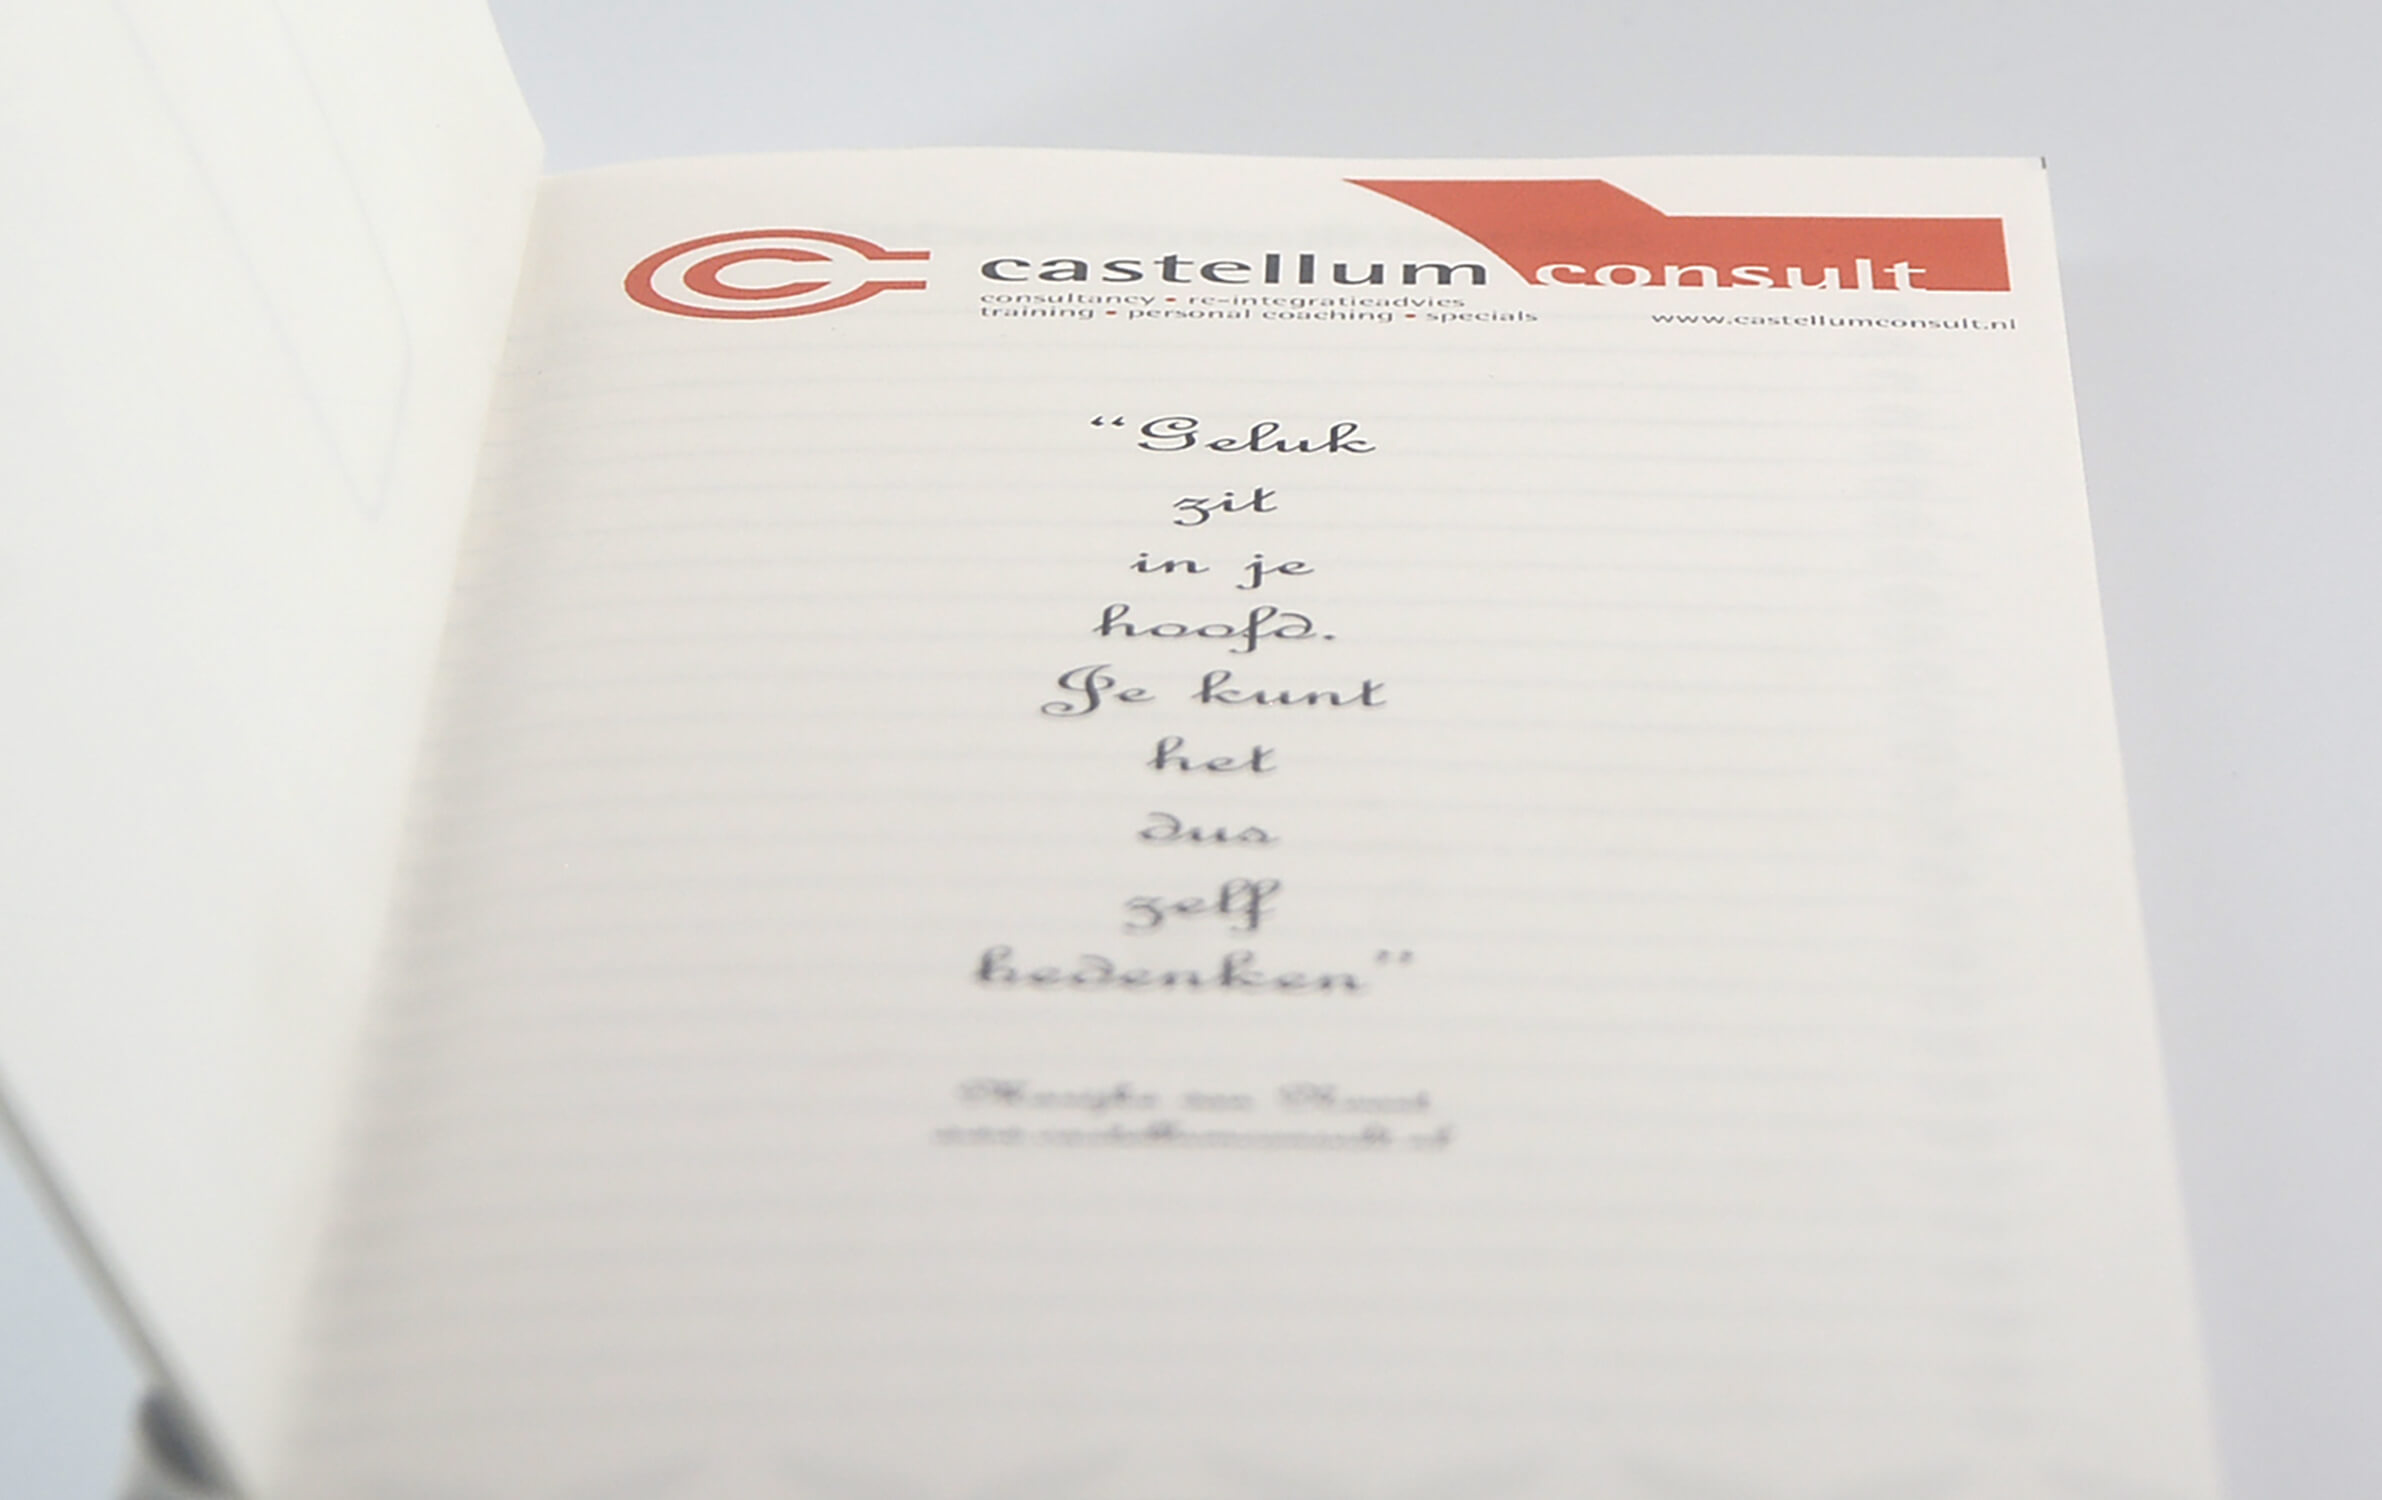 castellum consult
consultancy • re-integratieadvies
training • personal coaching • specials
www.castellumconsult.nl
“Geluk
zit
in je
hoofd.
Je kunt
het
dus
zelf
bedenken”
www.castellumconsult.nl